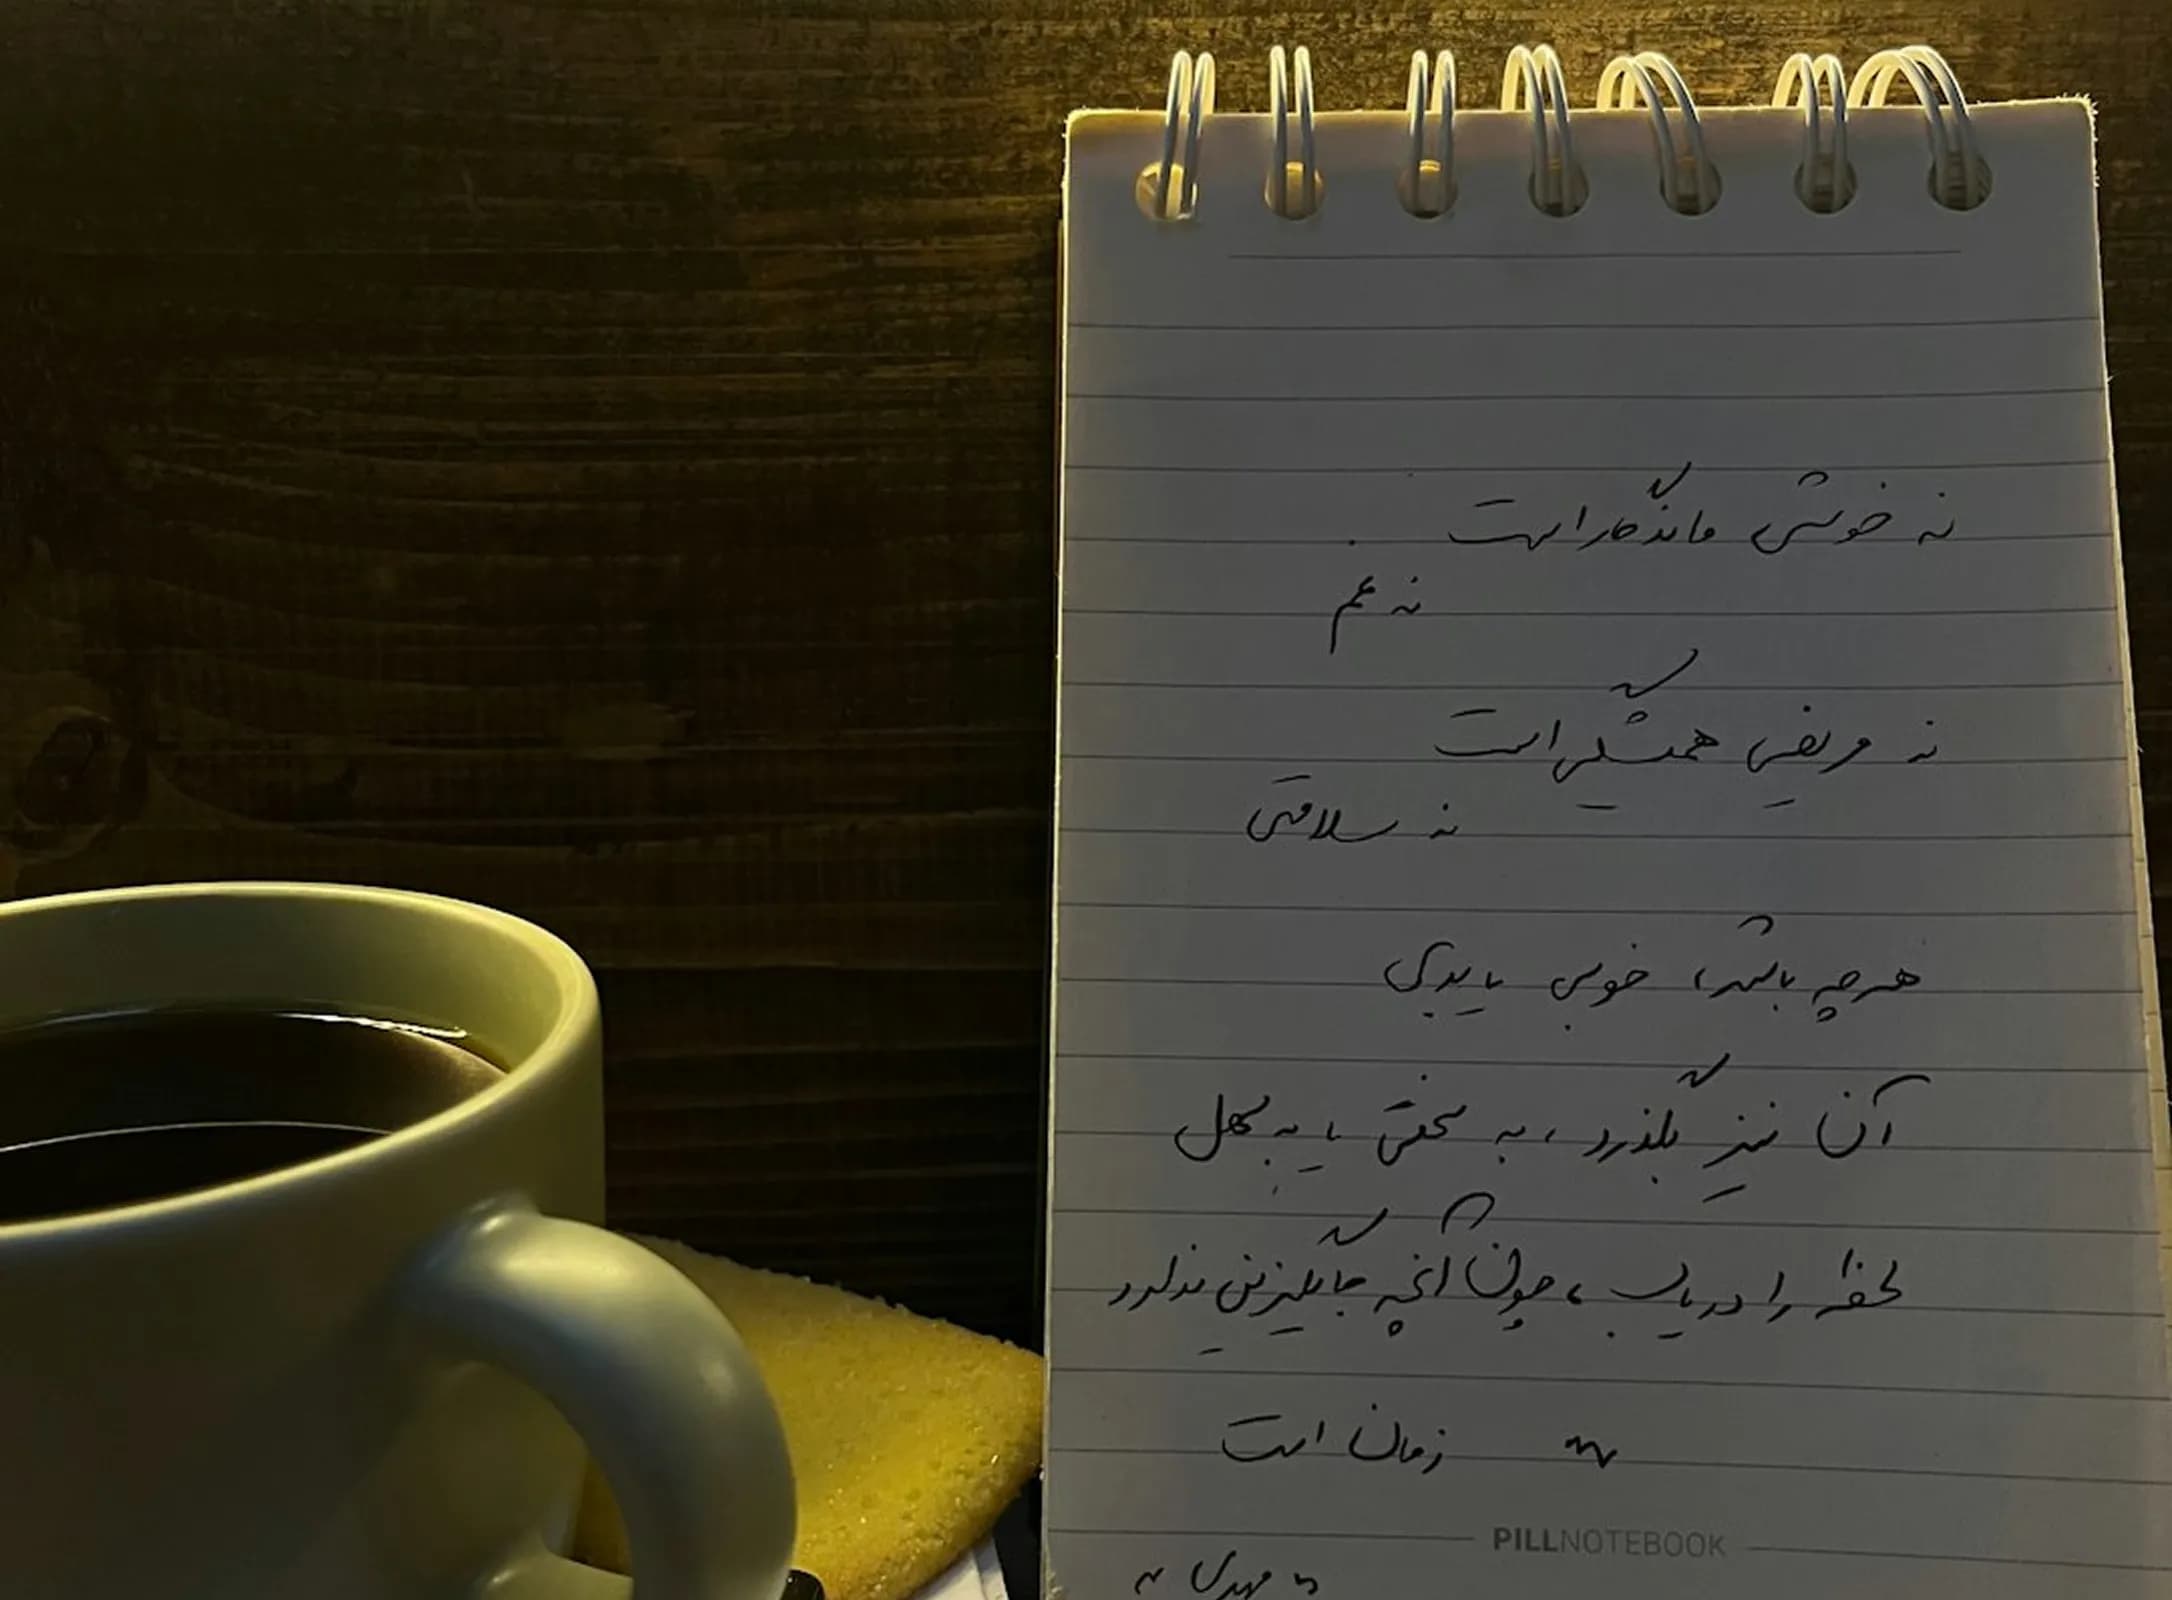 نه خوشی ماندگار است
نه غم
نه مریضی همیشگی است
نه سلامتی
هرچه باشد، خوبی یا بدی
آن نیز بگذرد، به سختی یا به سهل
لحظه را دریاب، چون آنچه جایگزینی ندارد
زمان است
PILLNOTEBOOK
مهدی